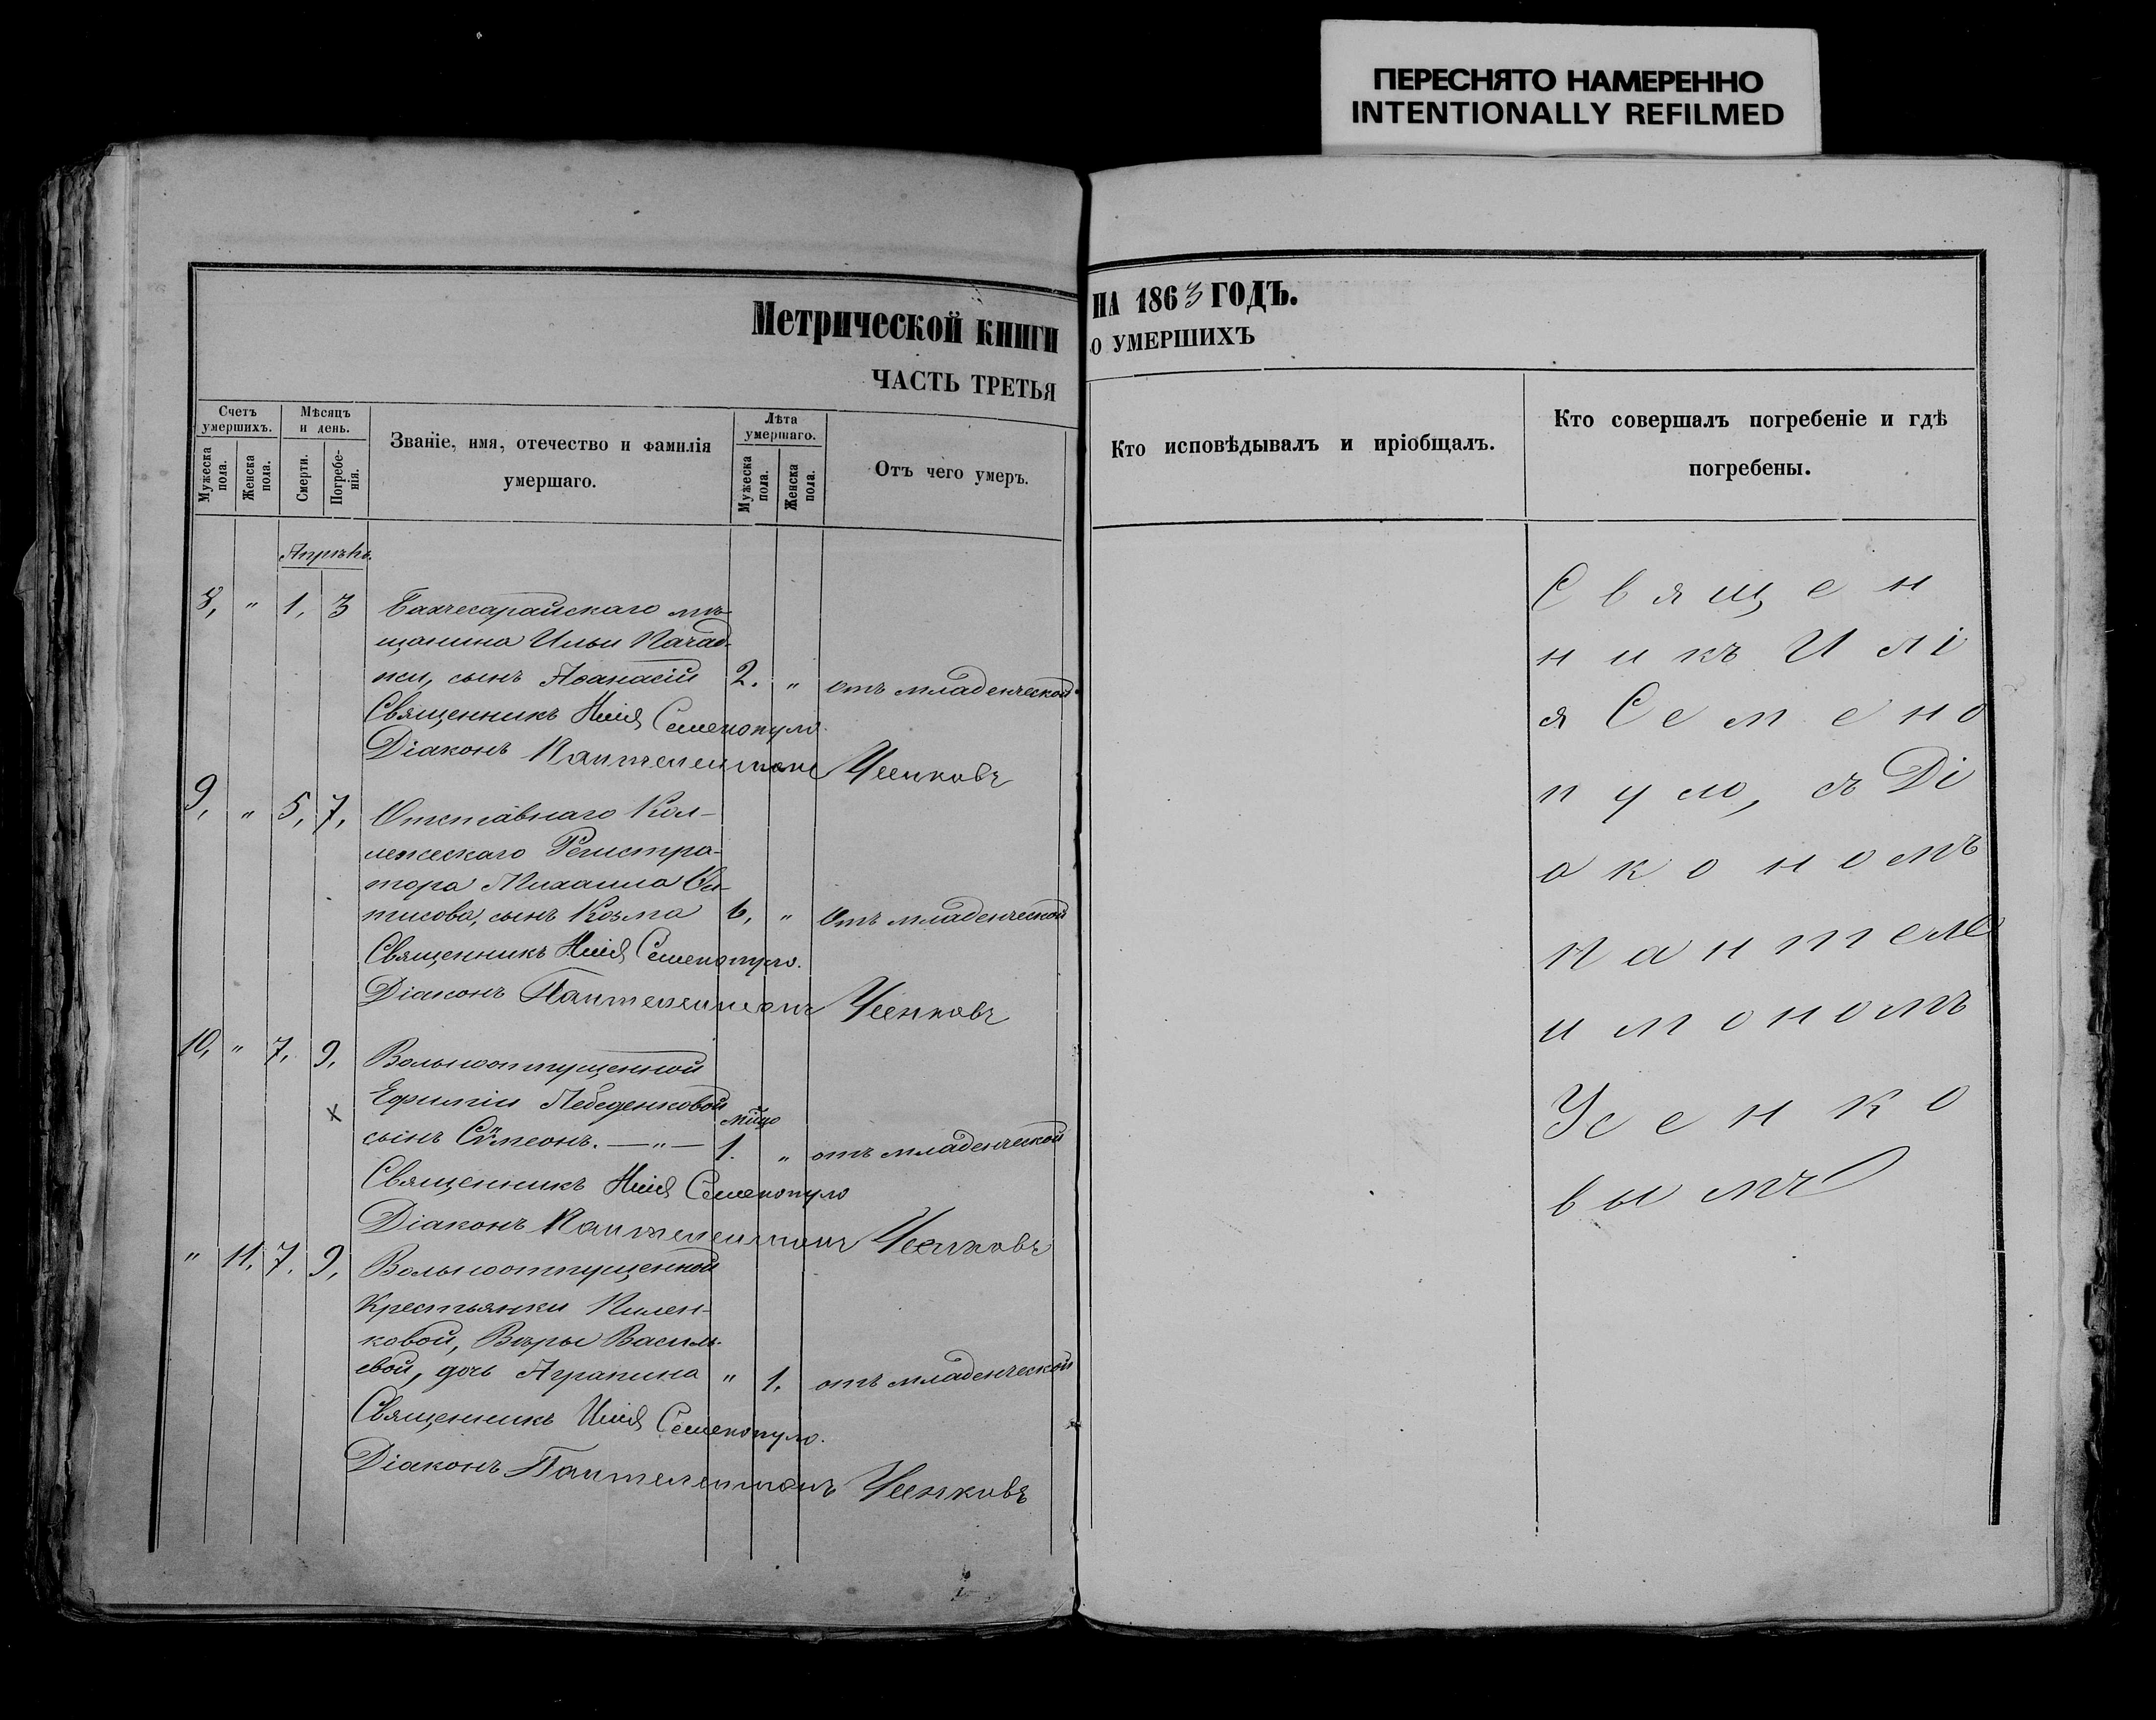 ПЕРЕСНЯТО НАМЕРЕННО
INTENTIONALLY REFILMED
Метрической книги
ЧАСТЬ ТРЕТЬЯ
НА 1863 ГОДЪ.
О УМЕРШИХЪ
Счетъ умершихъ.
Мужеска пола.
Женска пола.
Мѣсяцъ и день.
Смерти.
Погребенія.
Званіе, имя, отечество и фамилія
умершаго.
Лѣта умершаго.
Мужеска пола.
Женска пола.
Отъ чего умеръ.
Кто исповѣдывалъ и пріобщалъ.
Кто совершалъ погребеніе и гдѣ
погребены.
Апрѣль.
8, " 1, 3 Бахчесарайскаго мѣ-
щанина Ильи
сынъ Аѳанасій 2. " отъ младенческой
Священникъ Илія Семенопуло.
Діаконъ Пантелеимонъ Усенковъ
9, " 5, 7, Отставнаго Кол-
лежскаго Регистра-
тора Михаила
сынъ Козма 6, " Отъ младенческой
Священникъ Илія Семенопуло.
Діаконъ Пантелеимонъ Усенковъ
10, " 7, 9, Вольноотпущенной
Ефиміи Лебеденковой
сынъ Сѵмеонъ. — " — 1. " отъ младенческой
Священникъ Илія Семенопуло
Діаконъ Пантелеимонъ Усенковъ
" 11, 7, 9, Вольноотпущенной
Крестьянки Пилен-
ковой, Вѣры Василь-
евой, дочь Агрипина " 1, отъ младенческой
Священникъ Илія Семенопуло.
Діаконъ Пантелеимонъ Усенковъ
Священ
никъ Илі
я Семено
пуло, съ Ді
акономъ
Пантеле
имономъ
Усенко
вымъ